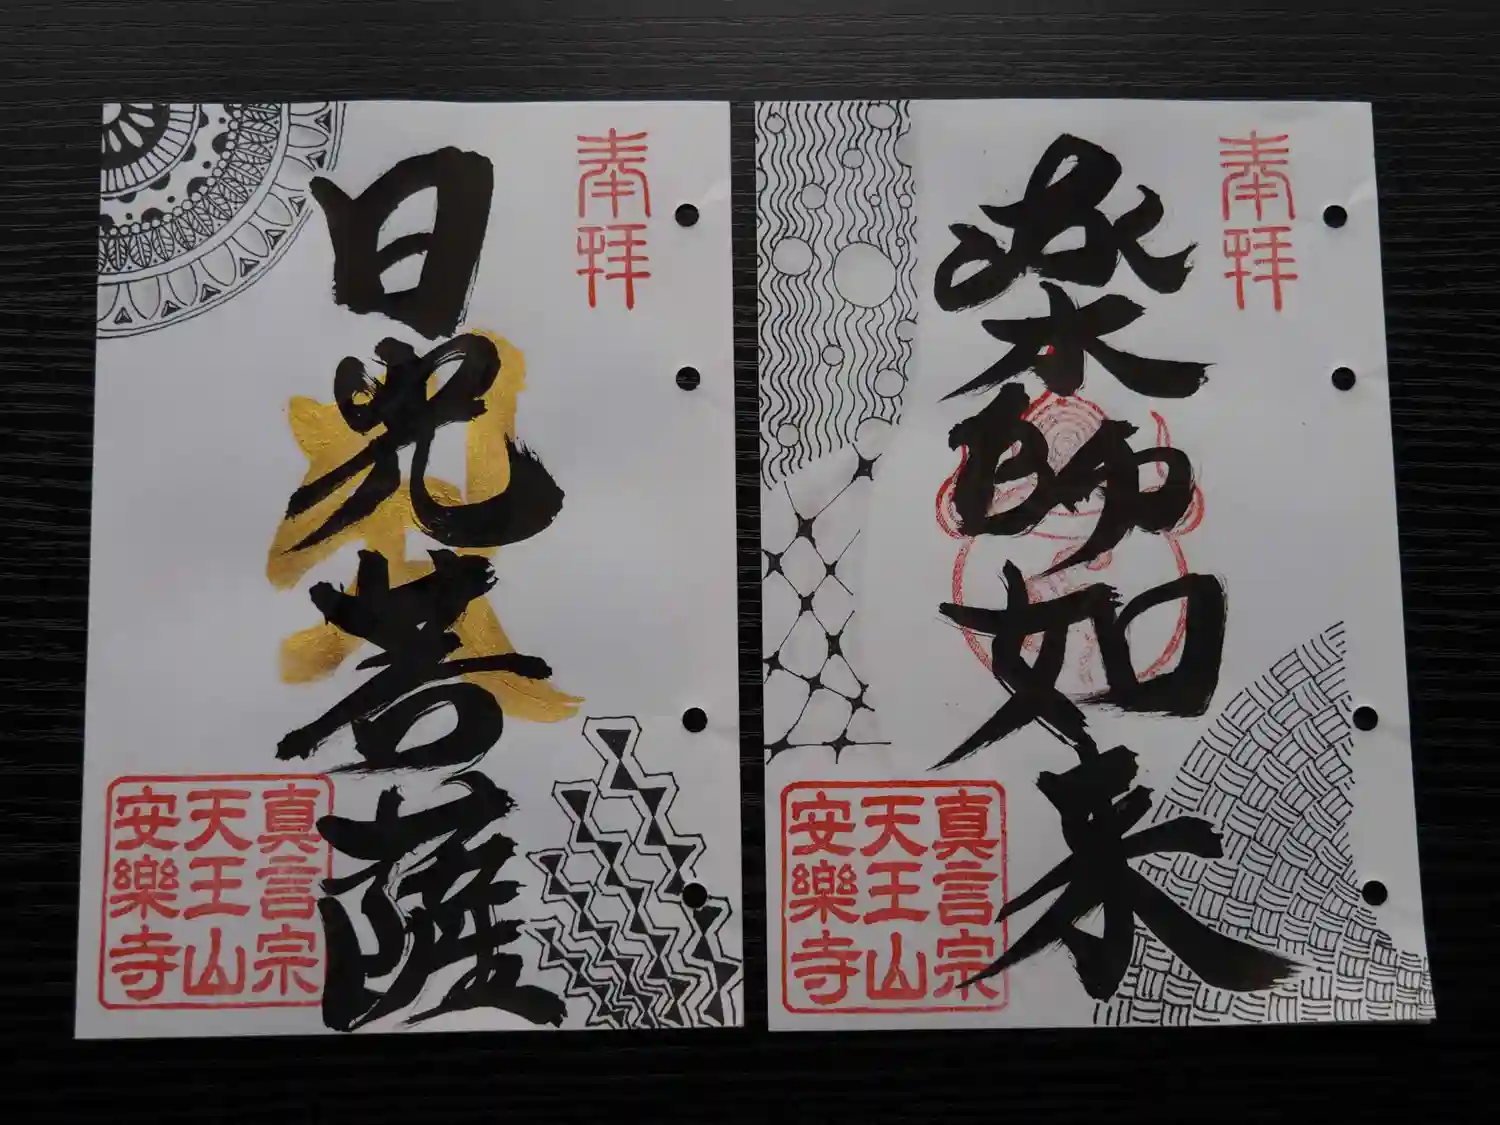 奉拝
薬師如来
真言宗
天王山
安樂寺
奉拝
日光菩薩
真言宗
天王山
安樂寺